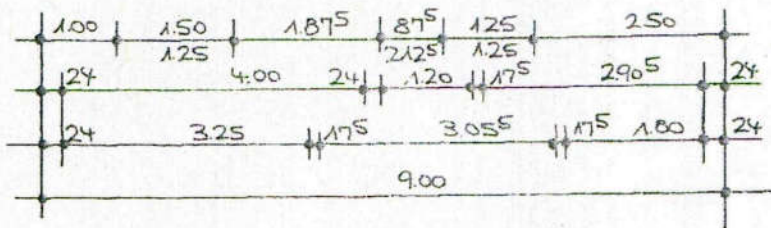 1.00 1.50 1.87⁵ 87⁵ 1.25 2.50
1.25 2.12⁵ 1.25
24 4.00 24 1.20 17⁵ 2.90⁵ 24
24 3.25 17⁵ 3.05⁵ 17⁵ 1.80 24
9.00